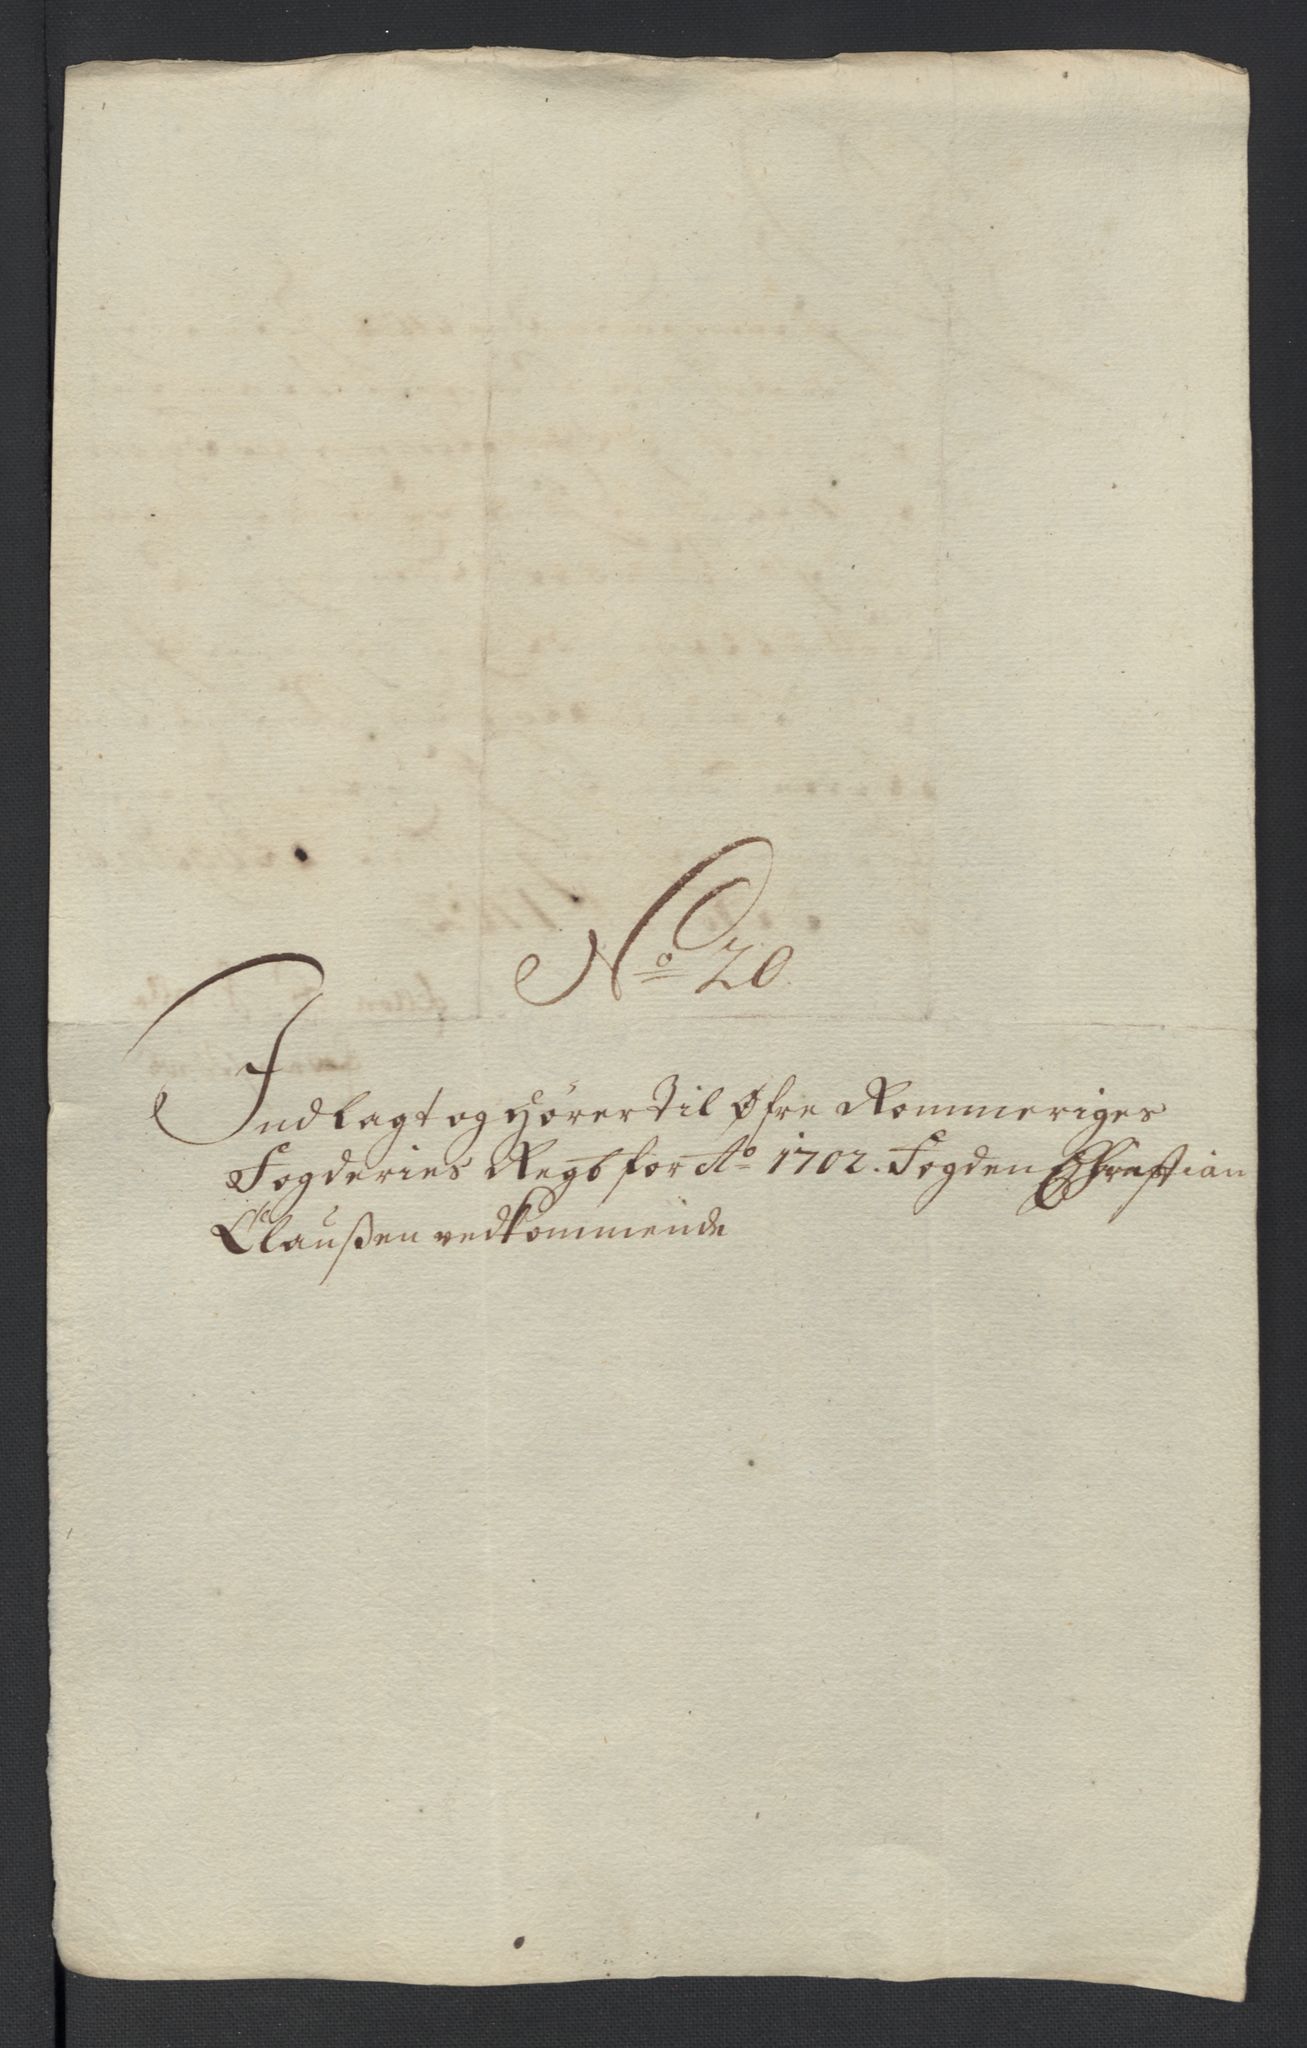 No 20.
Indlagt og hører til Øfre Rommeriges
Fogderies Regb for Ao 1702. Fogden Christian
Claußen vedkommende